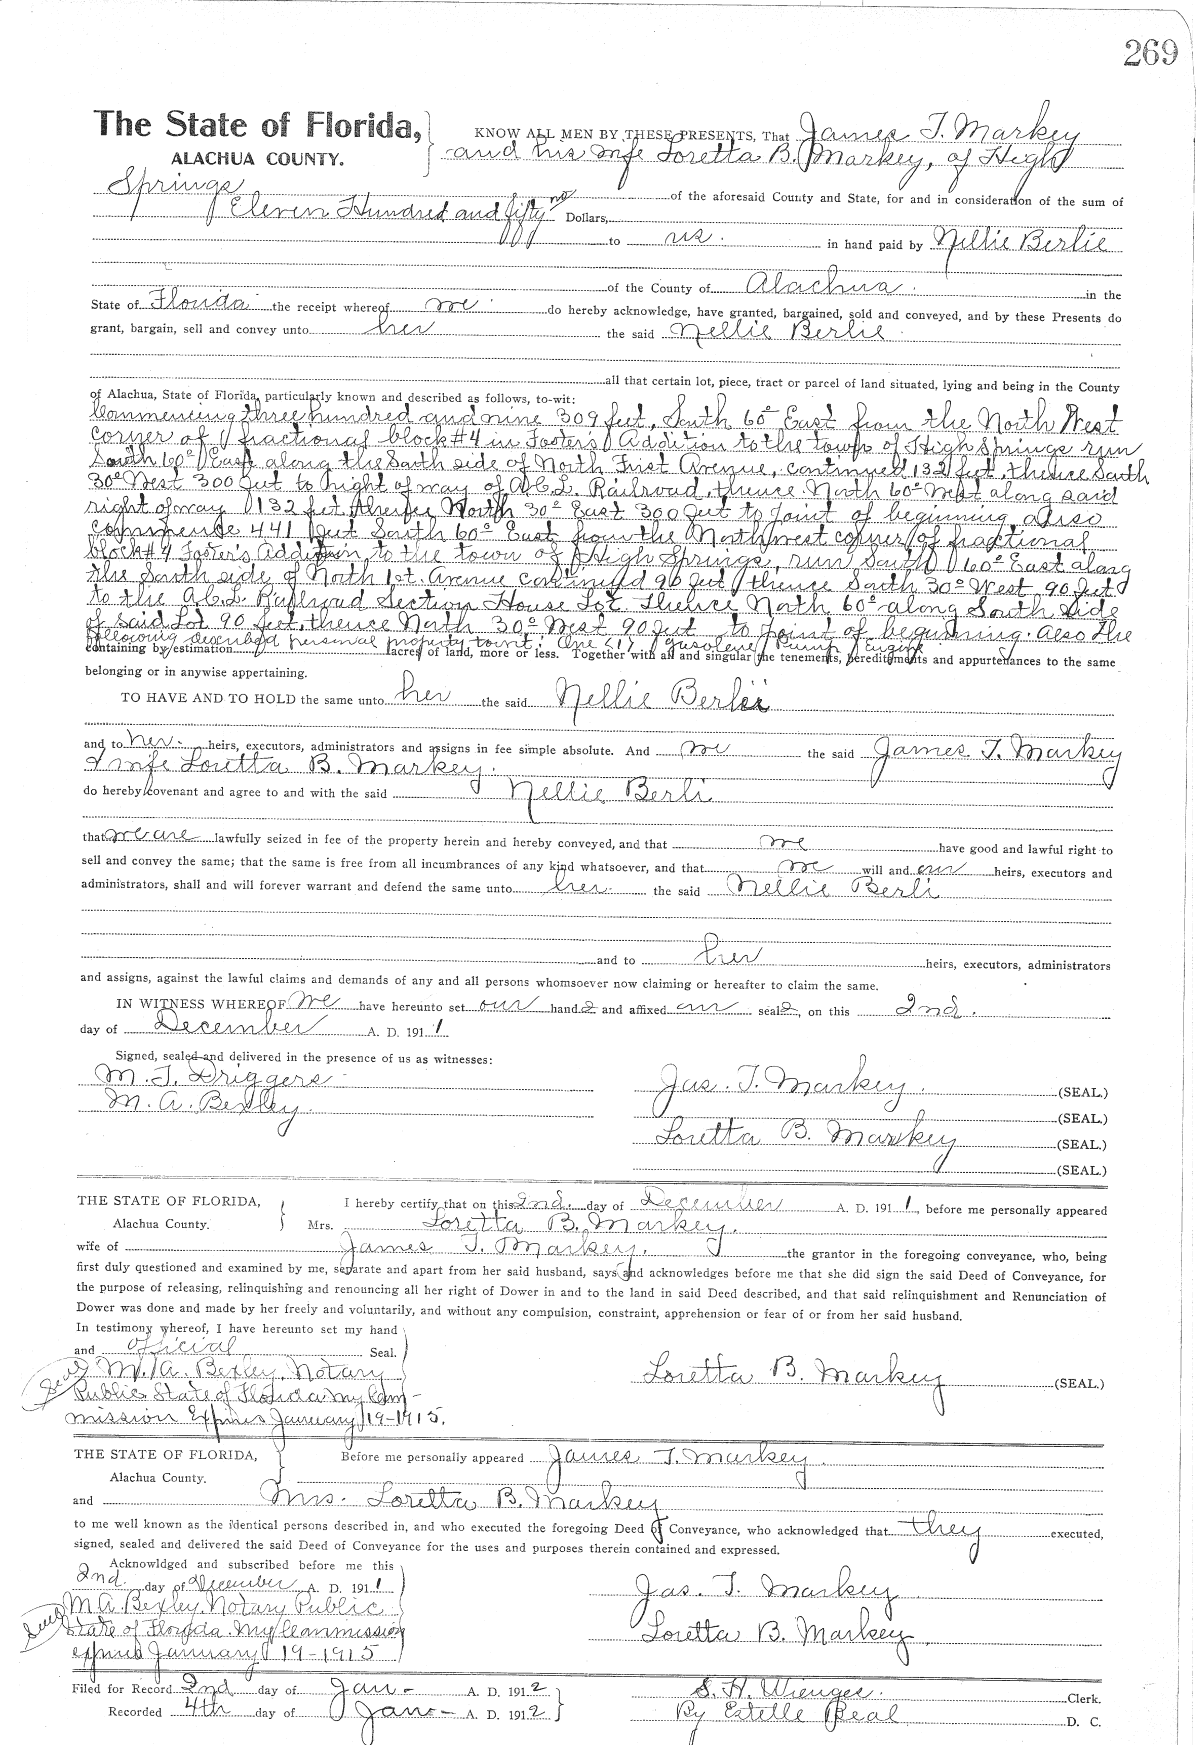 269
The State of Florida,
ALACHUA COUNTY.
KNOW ALL MEN BY THESE PRESENTS, That James T. Markey
and his wife Loretta B. Markey, of High
Springs of the aforesaid County and State, for and in consideration of the sum of
Eleven Hundred and fifty no Dollars,
to us. in hand paid by Nellie Berlie
of the County of Alachua. in the
State of Florida the receipt whereof we do hereby acknowledge, have granted, bargained, sold and conveyed, and by these Presents do
grant, bargain, sell and convey unto her the said Nellie Berlie
all that certain lot, piece, tract or parcel of land situated, lying and being in the County
of Alachua, State of Florida, particularly known and described as follows, to-wit:
Commencing three hundred and nine 309 feet, South 60° East from the North West
corner of fractional block #4 in Footers Addition to the town of High Springs run
South 60° East along the South side of North First Avenue, continued 132 feet, thence South
30° West 300 feet to right of way of A.C.L. Railroad, thence North 60° West along said
right of way 132 feet, thence North 30° East 300 feet to point of beginning, also
commence 441 feet South 60° East from the Northwest corner of fractional
block #4 Footer's Addition to the town of High Springs, run South 60° East along
the South side of North 1st. Avenue continued 90 feet thence South 30° West, 90 feet
to the A.C.L. Railroad Section House Lot. Thence North 60° along South side
of said Lot 90 feet, thence North 30° West 90 feet to point of beginning. Also the
following described personal property towit: One (1) gasolene Pump Engine
containing by estimation acres of land, more or less. Together with all and singular the tenements, hereditements and appurtenances to the same
belonging or in anywise appertaining.
TO HAVE AND TO HOLD the same unto her the said Nellie Berlie
and to her. heirs, executors, administrators and assigns in fee simple absolute. And we the said James T. Markey
& wife Loretta B. Markey.
do hereby covenant and agree to and with the said Nellie Berli
that we are lawfully seized in fee of the property herein and hereby conveyed, and that we have good and lawful right to
sell and convey the same; that the same is free from all incumbrances of any kind whatsoever, and that we will and our heirs, executors and
administrators, shall and will forever warrant and defend the same unto her. the said Nellie Berli
and to her heirs, executors, administrators
and assigns, against the lawful claims and demands of any and all persons whomsoever now claiming or hereafter to claim the same.
IN WITNESS WHEREOF We have hereunto set our hands and affixed our seals, on this 2nd.
day of December A. D. 1911.
Signed, sealed and delivered in the presence of us as witnesses:
M. T. Driggers
M. A. Bexley.
Jas. T. Markey (SEAL.)
(SEAL.)
Loretta B. Markey (SEAL.)
(SEAL.)
THE STATE OF FLORIDA,
Alachua County.
I hereby certify that on this 2nd. day of December A. D. 1911, before me personally appeared
Mrs. Loretta B. Markey.
wife of James T. Markey. the grantor in the foregoing conveyance, who, being
first duly questioned and examined by me, separate and apart from her said husband, says and acknowledges before me that she did sign the said Deed of Conveyance, for
the purpose of releasing, relinquishing and renouncing all her right of Dower in and to the land in said Deed described, and that said relinquishment and Renunciation of
Dower was done and made by her freely and voluntarily, and without any compulsion, constraint, apprehension or fear of or from her said husband.
In testimony whereof, I have hereunto set my hand
and official Seal.
Seal M. A. Bexley, Notary
Public State of Florida my Com-
mission Expires January 19-1915.
Loretta B. Markey (SEAL.)
THE STATE OF FLORIDA,
Alachua County.
Before me personally appeared James T. Markey
and Mrs. Loretta B. Markey
to me well known as the identical persons described in, and who executed the foregoing Deed of Conveyance, who acknowledged that they executed,
signed, sealed and delivered the said Deed of Conveyance for the uses and purposes therein contained and expressed.
Acknowldged and subscribed before me this
2nd. day of December A. D. 1911
Seal M. A. Bexley, Notary Public
State of Florida. My Commission
expires January 19-1915
Jas. T. Markey
Loretta B. Markey
Filed for Record 2nd day of Jan- A. D. 1912
Recorded 4th day of Jan- A. D. 1912
S. H. Wienges. Clerk.
By Estelle Beal D. C.